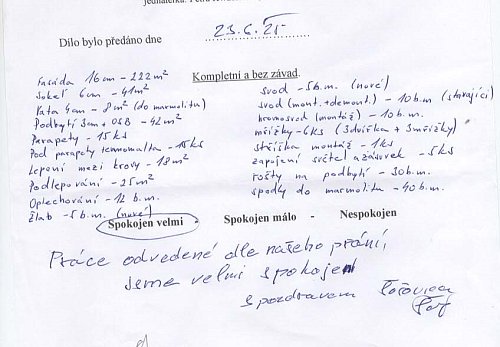 Dílo bylo předáno dne 23.6.25
Kompletní a bez závad.
Fasáda 16cm - 222m²
Sokel 6cm - 41m²
Pata 4cm - 8m² (do marmolitu)
Podbytí 3cm + OSB - 42m²
Parapety - 15ks
Pod parapety termomalta - 15ks
Lepení mezi krovy - 18m²
Podlepování - 25m²
Oplechování - 12 b.m.
Žlab - 5b.m. (nové)
svod - 5b.m. (nové)
svod (mont. + demont.) - 10b.m. (stávající)
hromosvod (montáž) - 10b.m.
mřížky - 6ks (3dvířka + 3mřížky)
stříška montáž - 1ks
zapojení světel a zásuvek - 5ks
rošty na podbytí - 30b.m.
spodky do marmolitu - 40b.m.
Spokojen velmi - Spokojen málo - Nespokojen
Práce odvedené dle našeho přání,
jsme velmi spokojen
s pozdravem